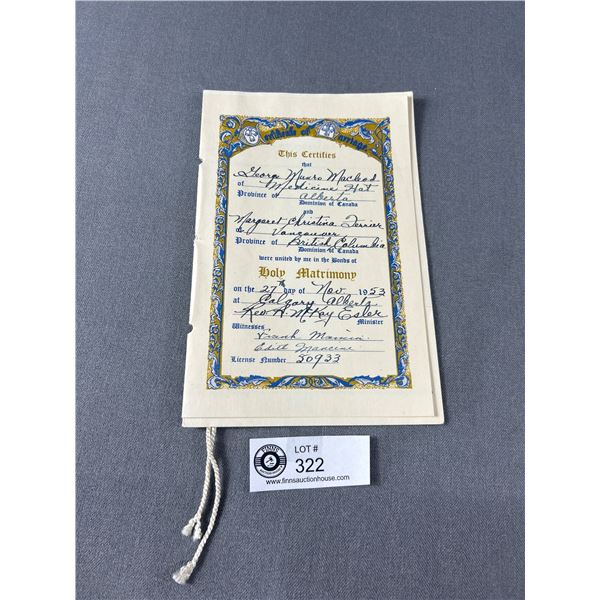 Certificate of Marriage
This Certifies
that
George Munro Macleod
of Medicine Hat
Province of Alberta
Dominion of Canada
and
Margaret Christina Ferrier
of Vancouver
Province of British Columbia
Dominion of Canada
were united by me in the Bonds of
Holy Matrimony
on the 27th day of Nov. 1953
at Calgary Alberta
Rev H. McKay Esler
Minister
Witnesses
Frank
Edith
License Number 50933
FINNS
LOT #
322
www.finnsauctionhouse.com